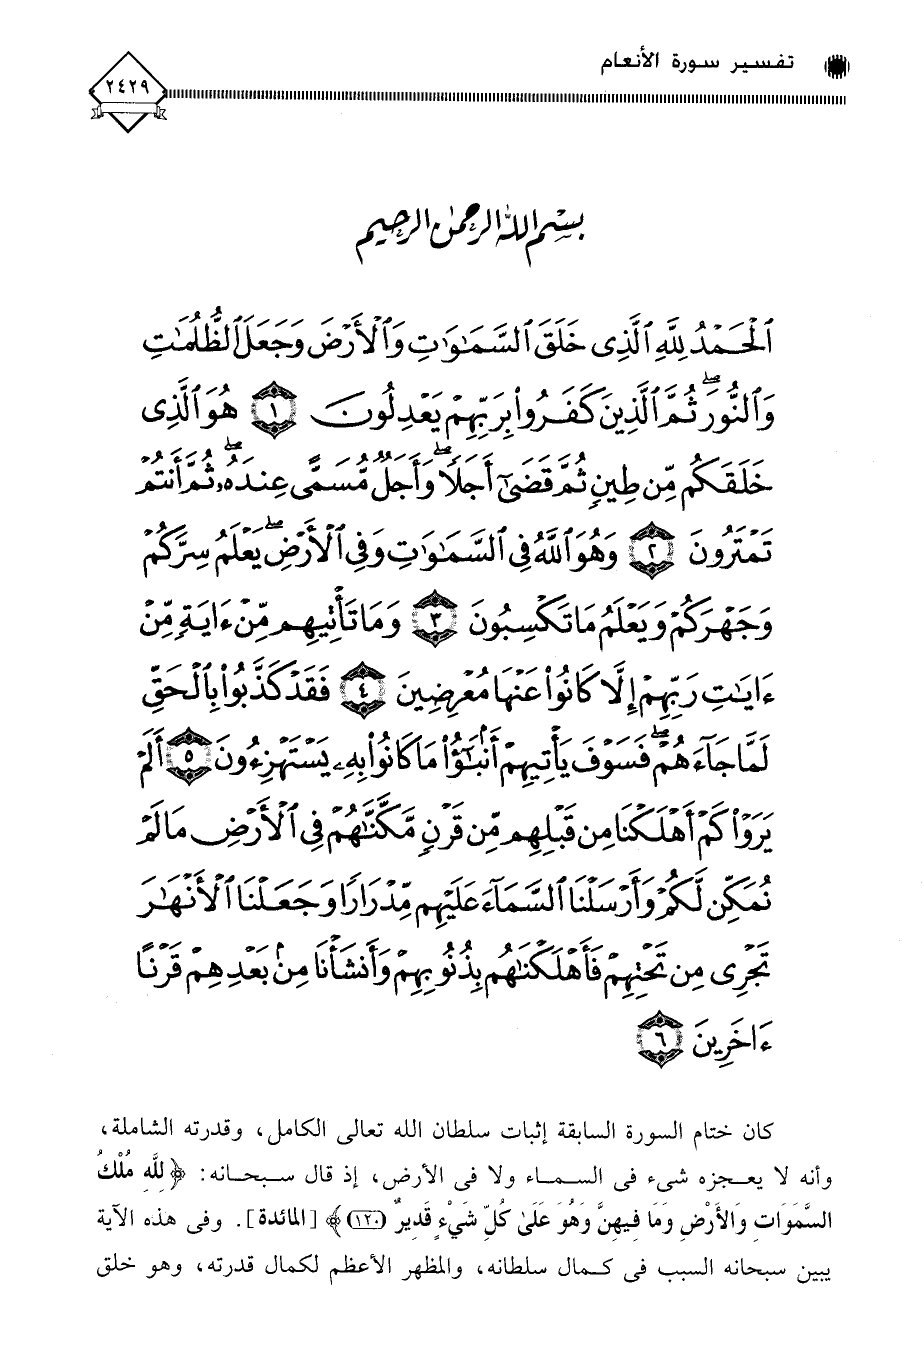 تفسير سورة الأنعام
٢٤٢٩
بسم الله الرحمن الرحيم
ٱلْحَمْدُ لِلَّهِ ٱلَّذِى خَلَقَ ٱلسَّمَٰوَٰتِ وَٱلْأَرْضَ وَجَعَلَ ٱلظُّلُمَٰتِ
وَٱلنُّورَ ۖ ثُمَّ ٱلَّذِينَ كَفَرُوا۟ بِرَبِّهِمْ يَعْدِلُونَ ١ هُوَ ٱلَّذِى
خَلَقَكُم مِّن طِينٍ ثُمَّ قَضَىٰٓ أَجَلًا ۖ وَأَجَلٌ مُّسَمًّى عِندَهُۥ ۖ ثُمَّ أَنتُمْ
تَمْتَرُونَ ٢ وَهُوَ ٱللَّهُ فِى ٱلسَّمَٰوَٰتِ وَفِى ٱلْأَرْضِ ۖ يَعْلَمُ سِرَّكُمْ
وَجَهْرَكُمْ وَيَعْلَمُ مَا تَكْسِبُونَ ٣ وَمَا تَأْتِيهِم مِّنْ ءَايَةٍ مِّنْ
ءَايَٰتِ رَبِّهِمْ إِلَّا كَانُوا۟ عَنْهَا مُعْرِضِينَ ٤ فَقَدْ كَذَّبُوا۟ بِٱلْحَقِّ
لَمَّا جَآءَهُمْ ۖ فَسَوْفَ يَأْتِيهِمْ أَنۢبَٰٓؤُا۟ مَا كَانُوا۟ بِهِۦ يَسْتَهْزِءُونَ ٥ أَلَمْ
يَرَوْا۟ كَمْ أَهْلَكْنَا مِن قَبْلِهِم مِّن قَرْنٍ مَّكَّنَّٰهُمْ فِى ٱلْأَرْضِ مَا لَمْ
نُمَكِّن لَّكُمْ وَأَرْسَلْنَا ٱلسَّمَآءَ عَلَيْهِم مِّدْرَارًا وَجَعَلْنَا ٱلْأَنْهَٰرَ
تَجْرِى مِن تَحْتِهِمْ فَأَهْلَكْنَٰهُم بِذُنُوبِهِمْ وَأَنشَأْنَا مِنۢ بَعْدِهِمْ قَرْنًا
ءَاخَرِينَ ٦
كان ختام السورة السابقة إثبات سلطان الله تعالى الكامل، وقدرته الشاملة،
وأنه لا يعجزه شىء فى السماء ولا فى الأرض، إذ قال سبحانه: ﴿لِلَّهِ مُلْكُ
السَّمَوَاتِ وَالأَرْضِ وَمَا فِيهِنَّ وَهُوَ عَلَىٰ كُلِّ شَيْءٍ قَدِيرٌ (١٢٠)﴾ [المائدة]. وفى هذه الآية
يبين سبحانه السبب فى كمال سلطانه، والمظهر الأعظم لكمال قدرته، وهو خلق